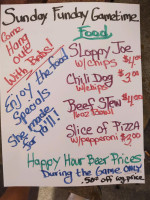 Sunday Funday Gametime
Come
Hang
out
With Babs!
Enjoy the food
Specials
She made
for ya'll!
Food
Sloppy Joe
w/chips $4.00
Chili Dog
w/chips $3.00
Beef Stew $4.00
Slice of Pizza
w/pepperoni $3.00
Happy Hour Beer Prices
During the Game ONLY
.50¢ off any price